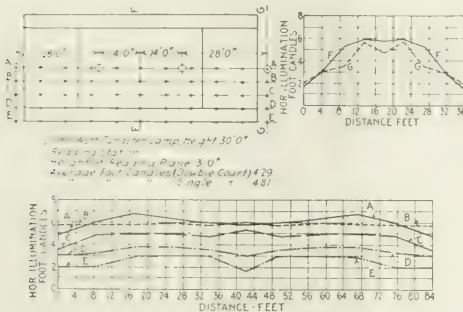 F
G
4'0"
14'0"
28'0"
A
B
C
D
E
F
G
Watt Tungsten Lamp, Height 30'0"
Reading Station
Height of Reading Plane 3'0"
Average Foot Candles (Double Court) 4.29
" " " Single " 4.81
HOR ILLUMINATION
FOOT CANDLES
8
6
4
2
F
F
G
G
0 4 8 12 16 20 24 28 32 36
DISTANCE FEET
HOR ILLUMINATION
FOOT CANDLES
8
6
4
2
0
A
B
C
D
E
A
B
C
D
E
0 4 8 12 16 20 24 28 32 36 40 44 48 52 56 60 64 68 72 76 80 84
DISTANCE - FEET